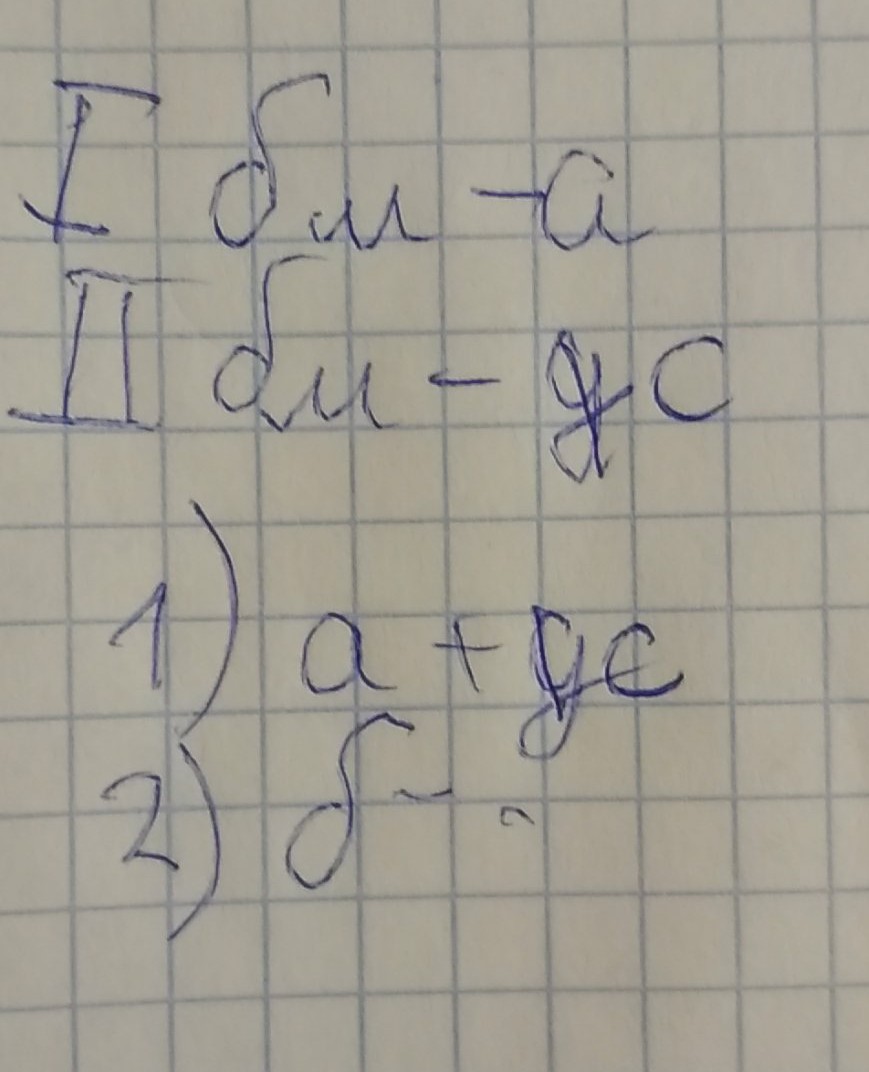 I би - а
II би - дс
1) а + дс
2) б -